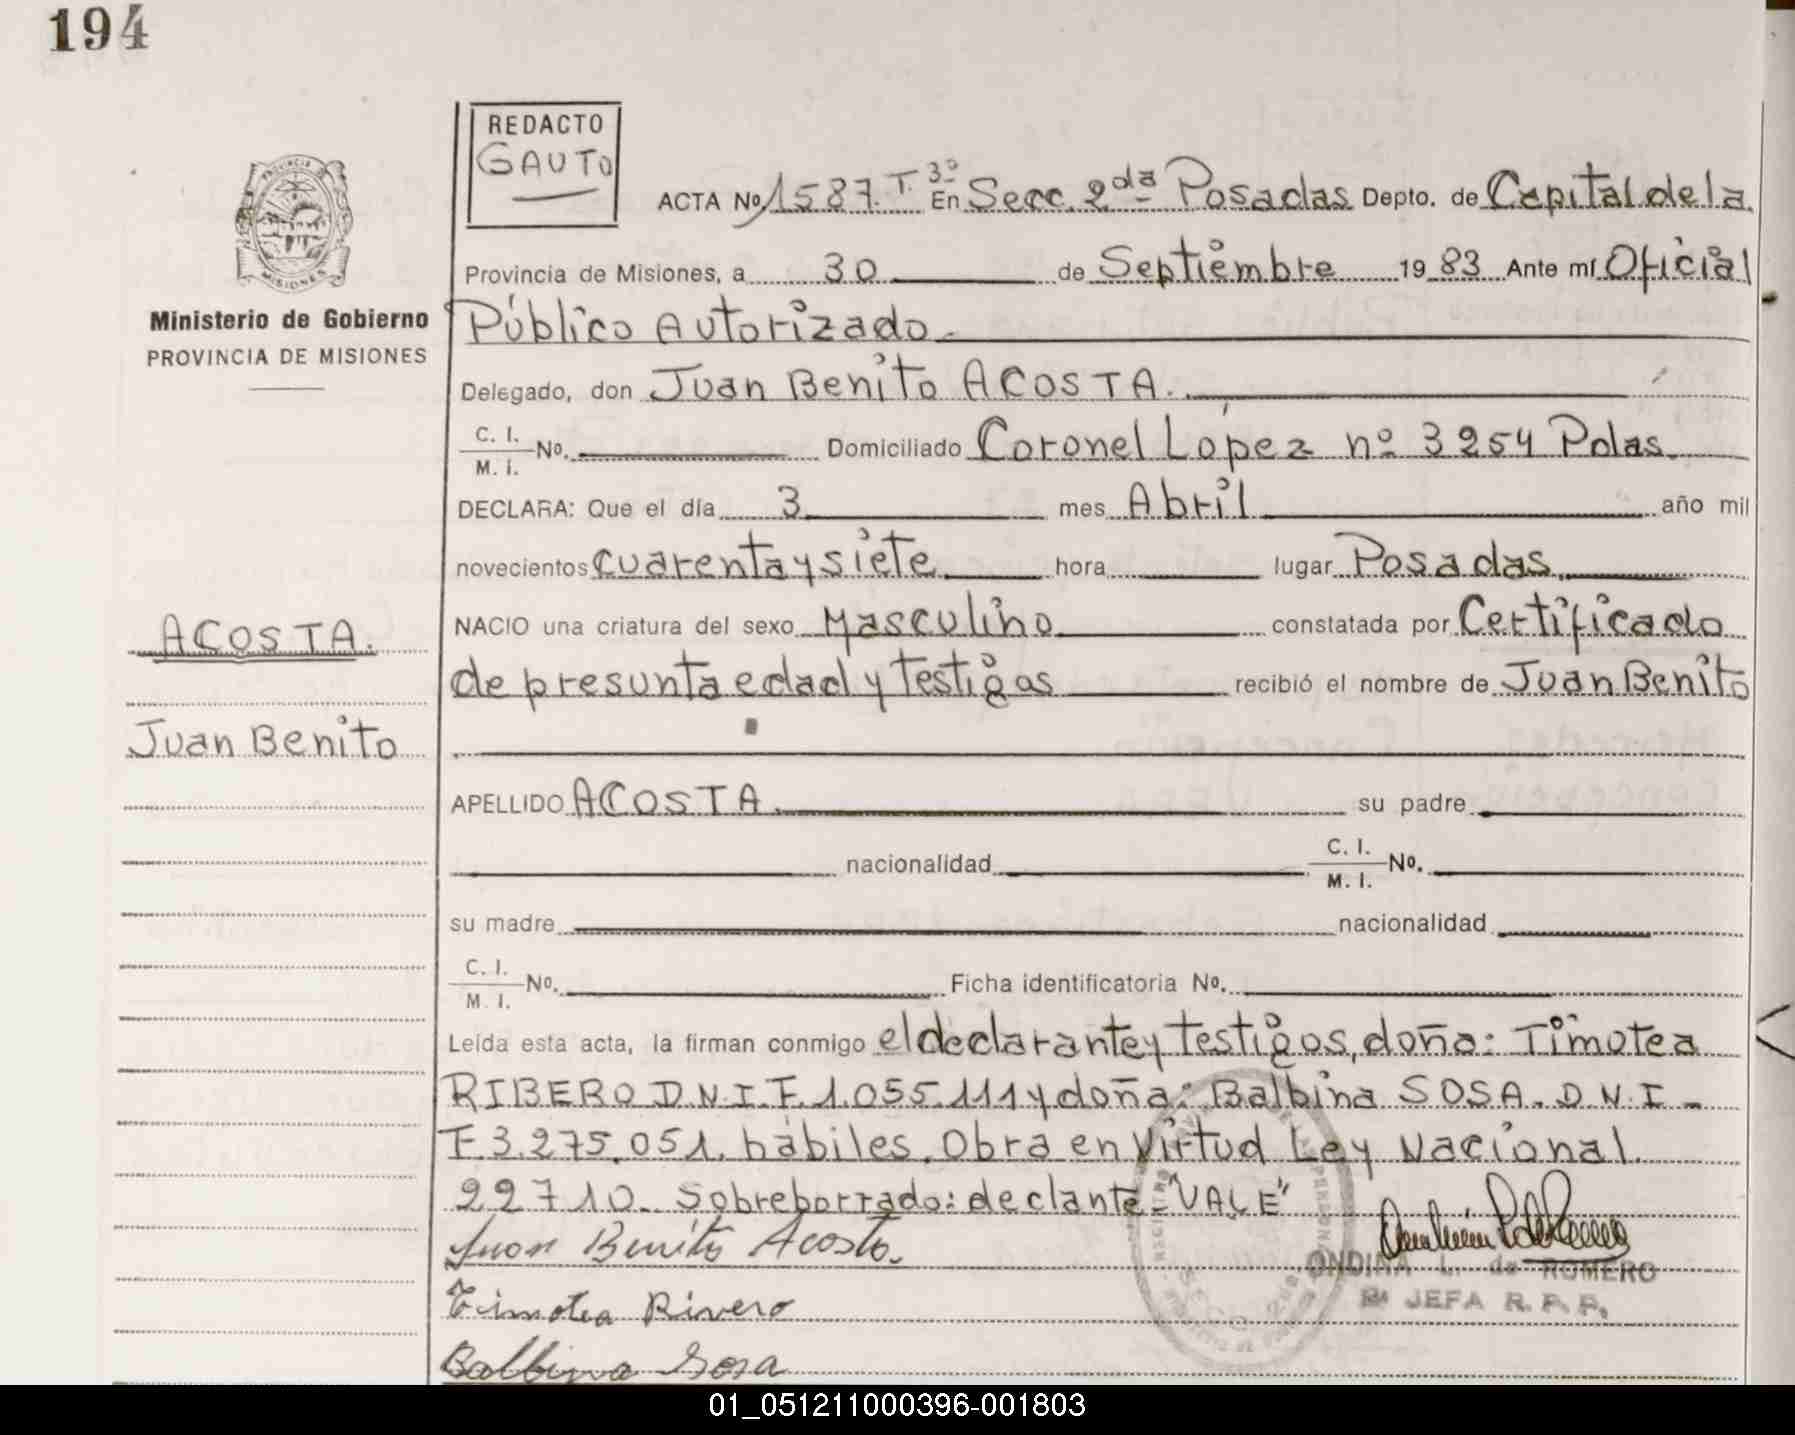 194
REDACTO
GAUTO
PROVINCIA
MISIONES
Ministerio de Gobierno
PROVINCIA DE MISIONES
ACTA No 1587. T. 3º En Secc. 2da Posadas Depto. de Capital de la
Provincia de Misiones, a 30 de Septiembre 19 83 Ante mí Oficial
Público Autorizado.
Delegado, don Juan Benito ACOSTA.
C. I. / M. I. No. Domiciliado Coronel López nº 3254 Pdas.
DECLARA: Que el día 3 mes Abril año mil
novecientos cuarenta y siete hora lugar Posadas
NACIO una criatura del sexo Masculino constatada por Certificado
de presunta edad y testigos recibió el nombre de Juan Benito
ACOSTA.
Juan Benito
APELLIDO ACOSTA. su padre
nacionalidad C. I. / M. I. No.
su madre nacionalidad
C. I. / M. I. No. Ficha identificatoria No.
Leída esta acta, la firman conmigo el declarante y testigos, doña: Timotea
RIBERO D.N.I. F. 1.055.111 y doña: Balbina SOSA. D.N.I.
F. 3.275.051. hábiles. Obra en Virtud Ley Nacional.
22710. Sobreborrado: declante "VALE"
Juan Benito Acosta.
Timotea Rivero
Balbina Sosa
ONDINA L. de ROMERO
JEFA R. P. P.
01_051211000396-001803